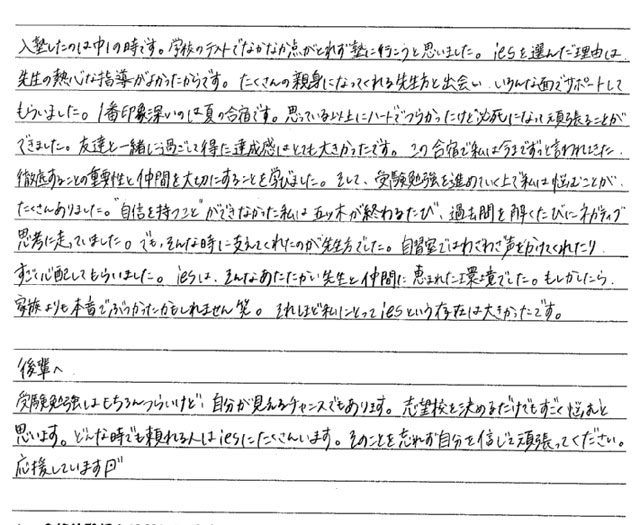 入塾したのは中1の時です。学校のテストでなかなか点がとれず塾に行こうと思いました。iesを選んだ理由は、
先生の熱心な指導がよかったからです。たくさんの親身になってくれる先生方と出会い、いろんな面でサポートして
もらいました。1番印象深いのは夏の合宿です。思っている以上にハードでつらかったけど必死になって頑張ることが
できました。友達と一緒に過ごして得た達成感はとても大きかったです。この合宿で私は今までずっと言われてきた、
徹底することの重要性と仲間を大切にすることを学びました。そして、受験勉強を進めていく上で私は悩むことが、
たくさんありました。"自信を持つこと"ができなかった私は五ツ木が終わるたび、過去問を解くたびにネガティブ
思考に走っていました。でも、そんな時に支えてくれたのが先生方でした。自習室ではわざわざ声をかけてくれたり、
すごく心配してもらいました。iesは、そんなあたたかい先生と仲間に恵まれた環境でした。もしかしたら、
家族よりも本音でぶつかったかもしれません笑。それほど私にとってiesという存在は大きかったです。
後輩へ
受験勉強はもちろんつらいけど、自分が見えるチャンスでもあります。志望校を決めるだけでもすごく悩むと
思います。どんな時でも頼れる人はiesにたくさんいます。そのことを忘れず自分を信じて頑張ってください。
応援しています